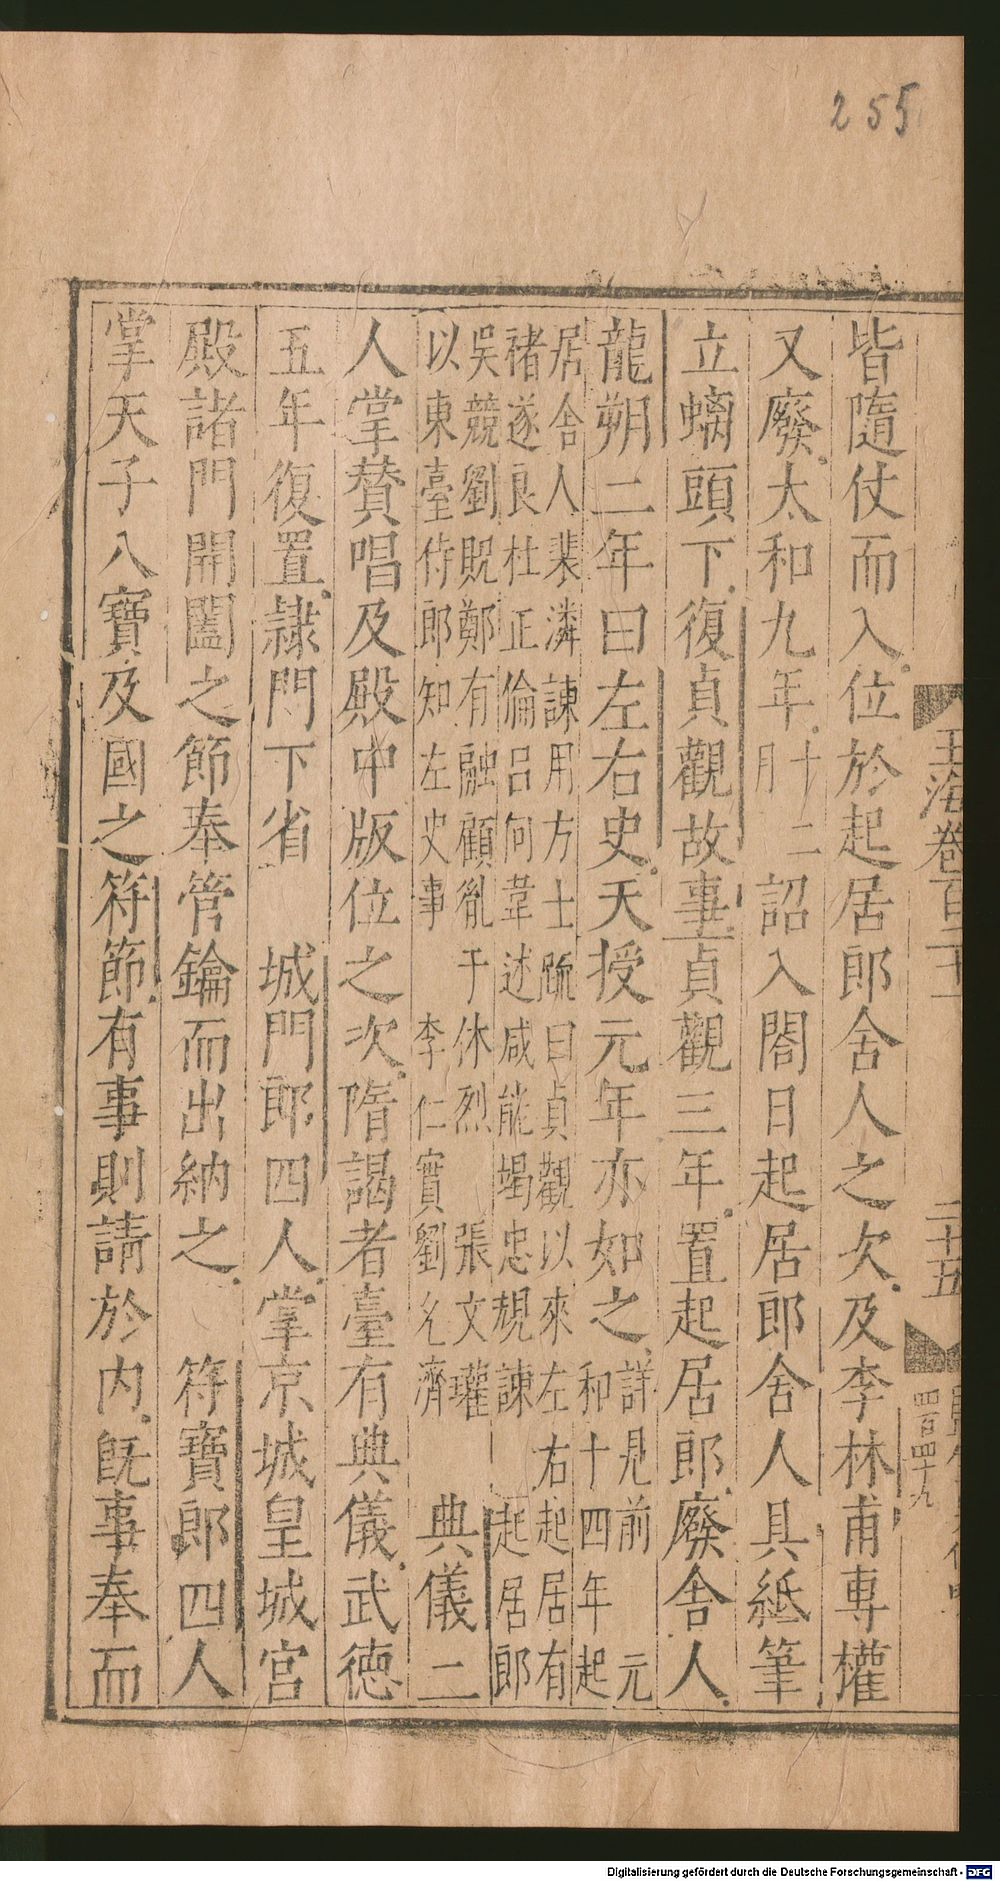 255
玉海卷百二十一
二十五
四百四十九
皆隨仗而入位於起居郎舍人之次及李林甫專權
又廢太和九年十二月詔入閤日起居郎舍人具紙筆
立螭頭下復貞觀故事貞觀三年置起居郎廢舍人
龍朔二年曰左右史天授元年亦如之詳見前 元和十四年起
居舍人裴潾諫用方士䟽曰貞觀以來左右起居有
褚遂良杜正倫呂向韋述咸能竭忠規諫 起居郎
吳競劉貺鄭有融顧胤于休烈 張文瓘
以東臺侍郎知左史事 李仁實劉允濟 典儀二
人掌贊唱及殿中版位之次隋謁者臺有典儀武德
五年復置隷門下省 城門郎四人掌京城皇城宮
殿諸門開闔之節奉管鑰而出納之 符寶郎四人
掌天子八寶及國之符節有事則請於內旣事奉而
Digitalisierung gefördert durch die Deutsche Forschungsgemeinschaft - DFG